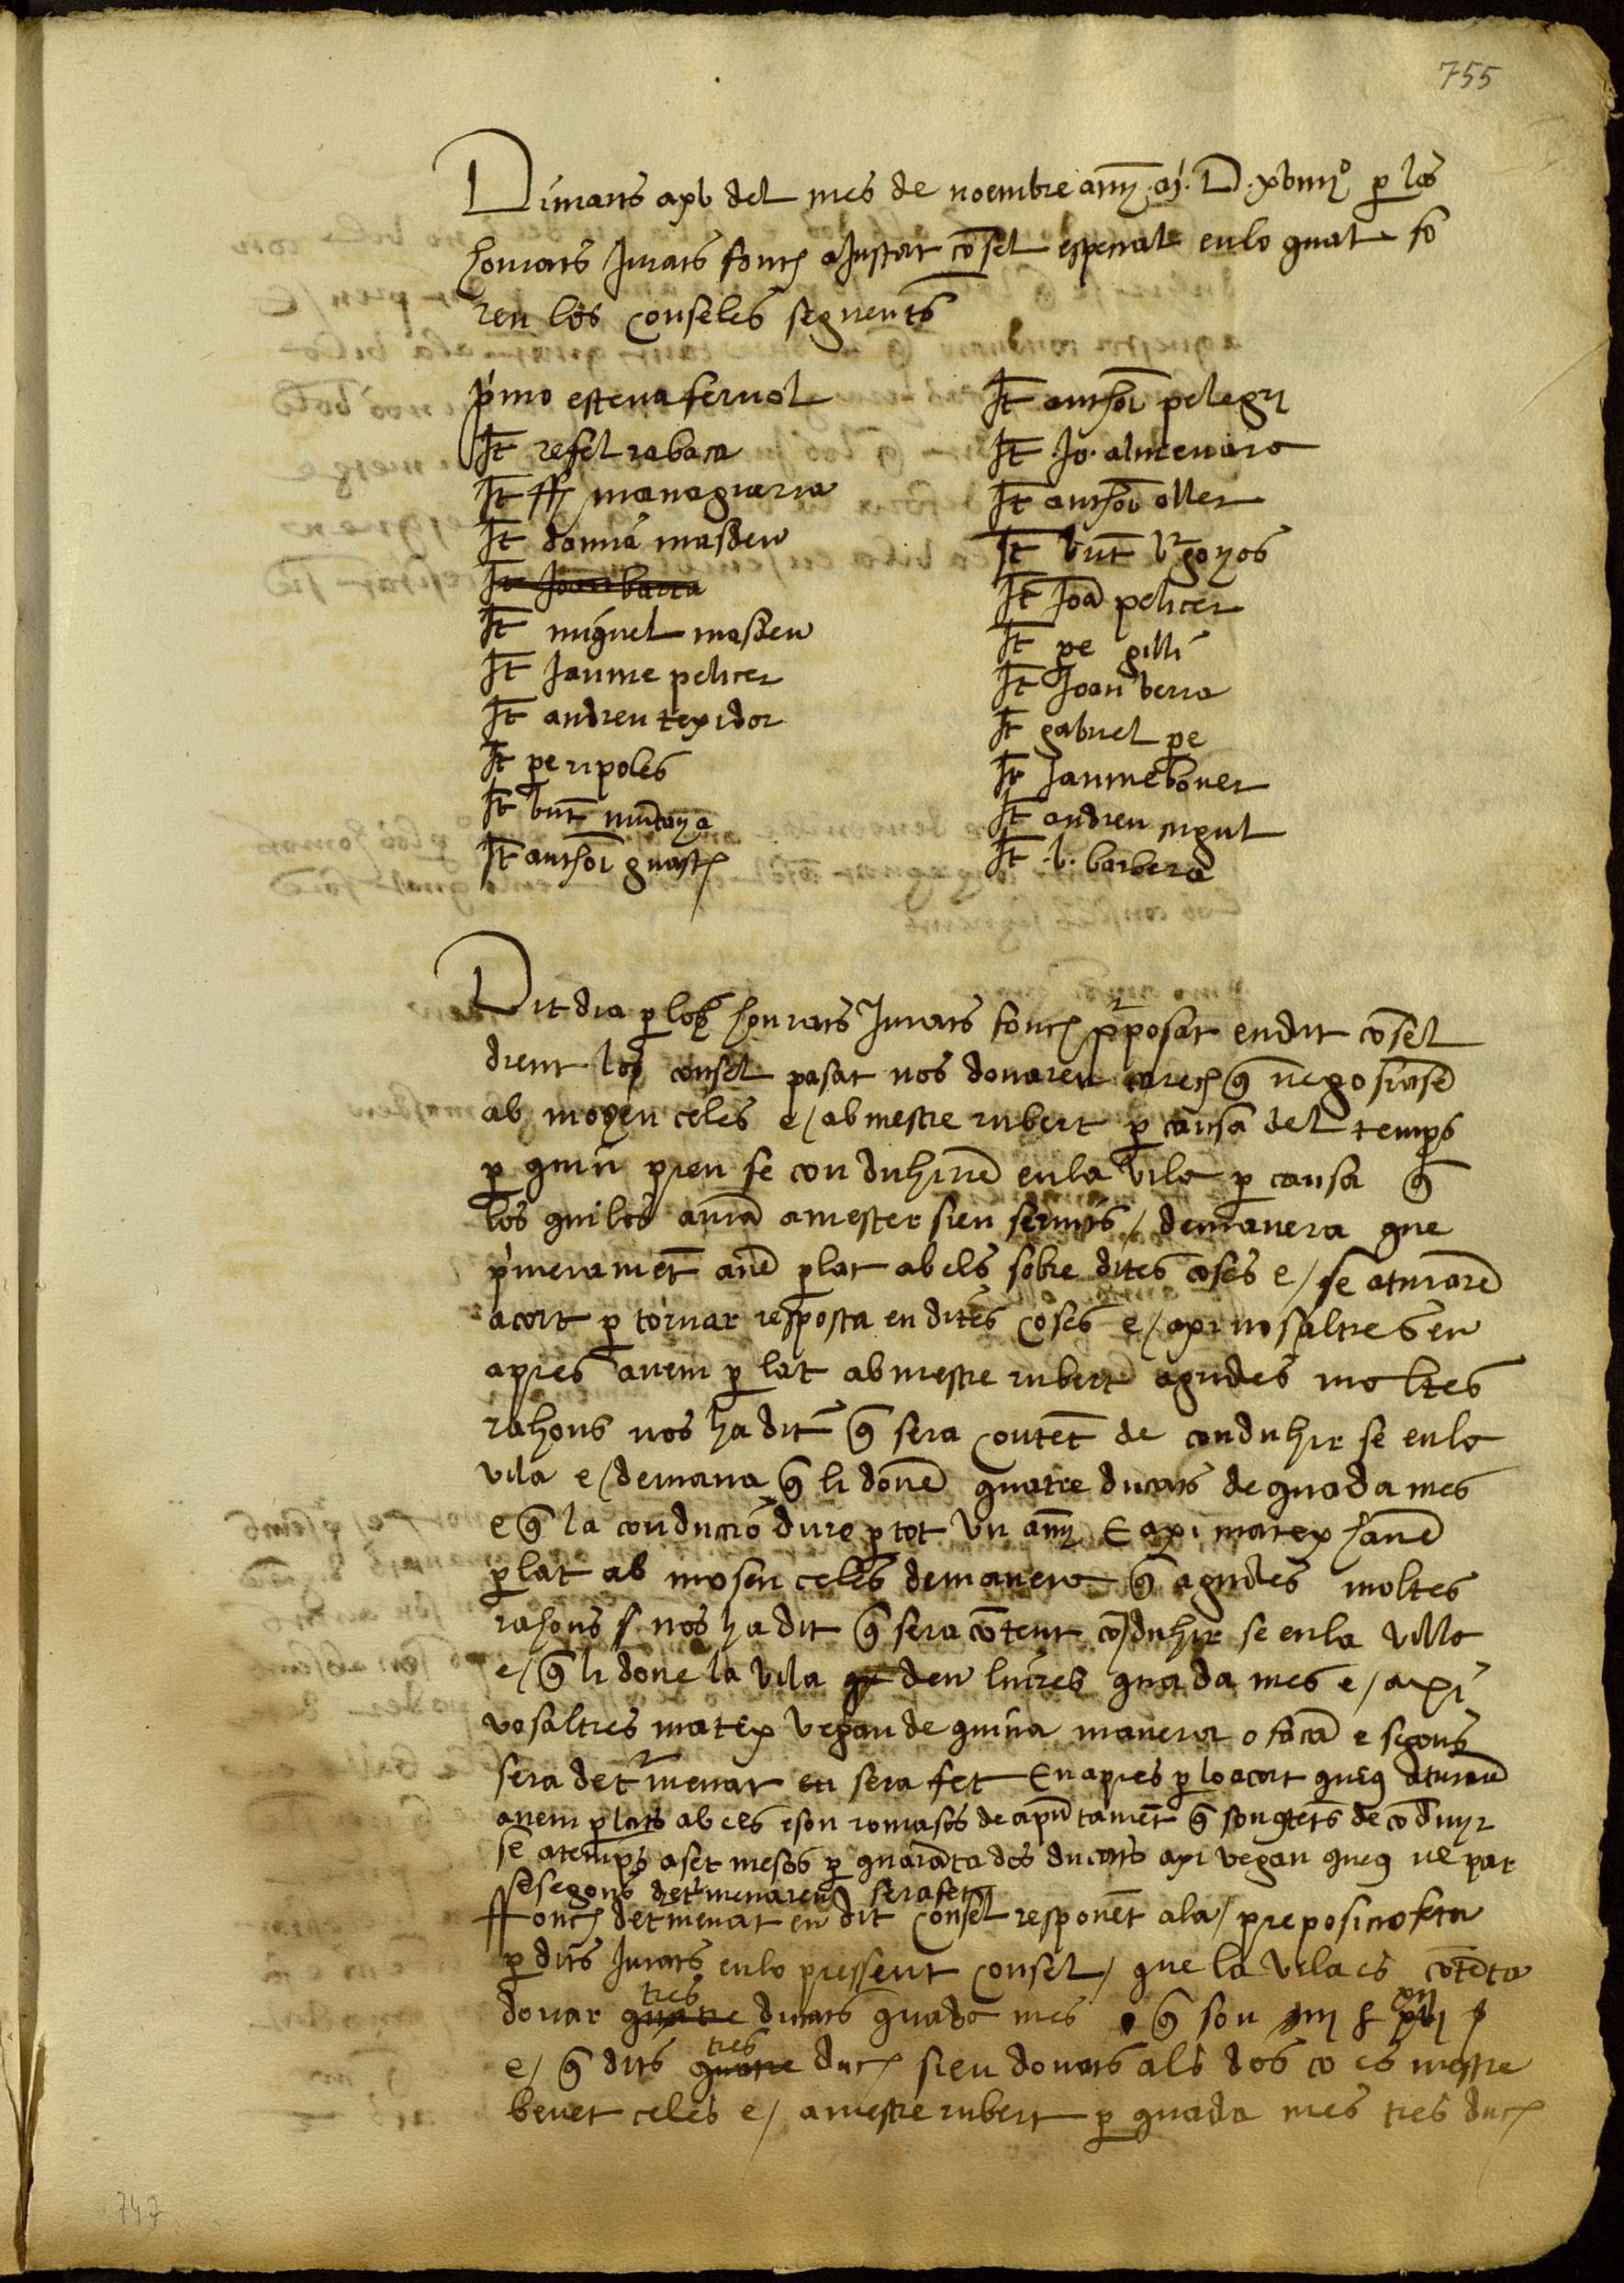 755
Dimats a xv del mes de noembre any M D xviiiiº per los
honrats Jurats fonch aJustat consel especial en lo qual fo
ren los conseles seguents
primo esteva fernol
It refel rabaca
It ff managuerra
It damia masdeu
It Joan barra
It miguel masdeu
It Jaume pelicer
It andreu texidor
It pe ripoles
It bnt muntanya
It anthoi guasch
It anthoi pelegri
It Jo. almenara
It anthoi oller
It bnt bgoyos
It Joa pelicer
It pe gilli
It Joan berra
It gabriel pe
It Jaume bover
It andreu
It .b. barbera
Dit dia per los honrats Jurats fonch proposat en dit consel
dient lo consel pasat nos donaren carech que negosiasem
ab mosen celes e / ab mestre rubert per causa del temps
per quin preu se conduhirien en la vila per causa que
los qui los auran a mester sien servits / de manera que
primerament avem parlat ab els sobre dites coses e / se aturaren
acort per tornar resposta en dites coses e / axi nosaltres en
apres avem parlat ab mestre rubert agudes moltes
rahons nos ha dit que sera content de conduhir se en la
vila e / demana que li donem quatre ducats de quada mes
e que la conduccio dure per tot vn any E axi matex havem
parlat ab mosen celes de manera que agudes moltes
rahons nos ha dit que sera content conduhir se en la villa
e / que li done la vila deu liures quada mes e / axi
vosaltres matex vegau de quina manera o facam e segons
sera determenat en sera fet En apres per lo acort que aturaren
avem parlats ab els e son romasos de apuntament que son contents de conduyr
se a temps a set mesos per quaranta dos ducats axi vegau que us ne par
e segons determenareu sera fet
Ffonch determenat en dit consel responent a la / preposicio feta
per dits Jurats en lo pressent consel / que la vila es contenta
donar quatre tres ducats quada mes que son
e / que dits quatre tres duch sien donats als dos co es mestre
benet celes e / a mestre rubert per quada mes tres duch
747